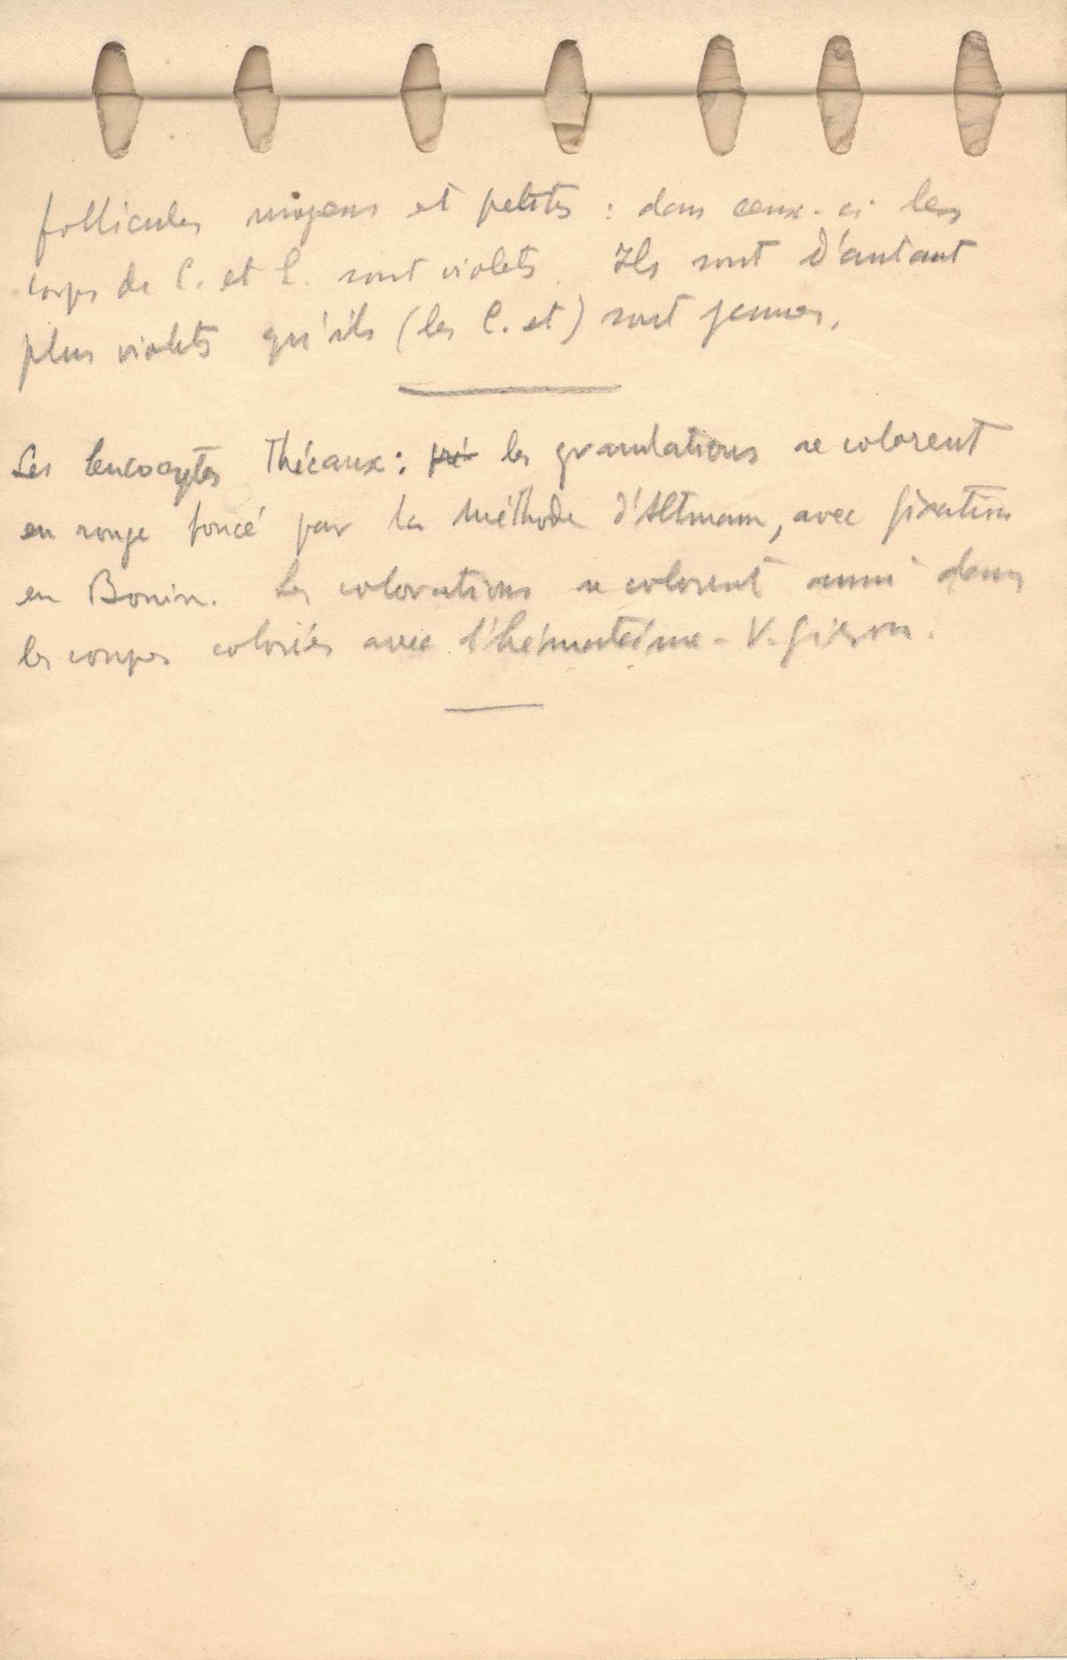 follicules moyens et petits : dans ceux-ci les
corps de C. et E. sont violets. Ils sont d'autant
plus violets qu'ils (les C. et) sont jeunes.
Les leucocytes thécaux : les granulations se colorent
en rouge foncé par la méthode d'Altmann, avec fixation
en Bouin. Les colorations se colorent aussi dans
les coupes coloriés avec l'hématéine - V. Gieson.